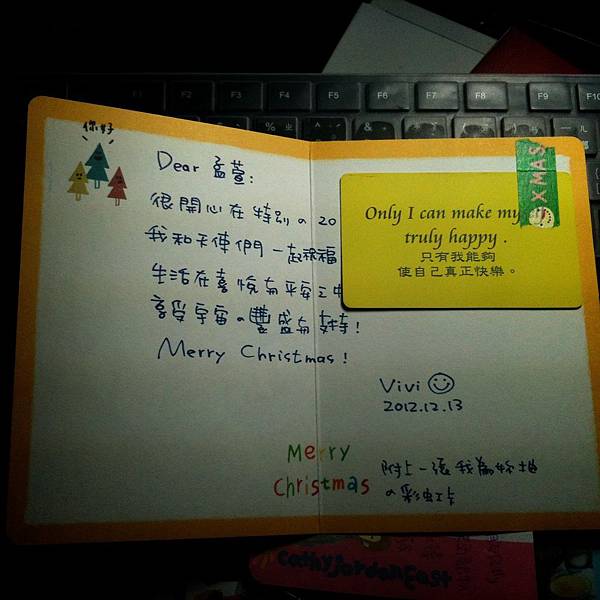 你好
Dear 孟萱:
很開心在特別の20
我和天使們一起祝福
生活在喜悅與平安之中
享受宇宙の豐盛與支持!
Merry Christmas!
XMAS
Only I can make my
truly happy .
只有我能夠
使自己真正快樂。
Vivi
2012.12.13
Merry
Christmas
附上一張我為妳抽
の彩虹卡
cathyjordanEast
F1 F2 F3 F4 F5 F6 F7 F8 F9 F10